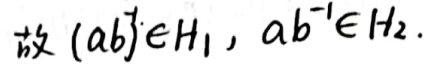 故 (ab)⁻¹∈H₁, ab⁻¹∈H₂.